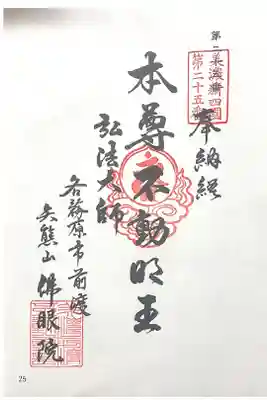 第二
美濃新四國
第二十五番
奉納経
本尊不動明王
弘法大師
各務原市前渡
矢熊山 佛眼院
25